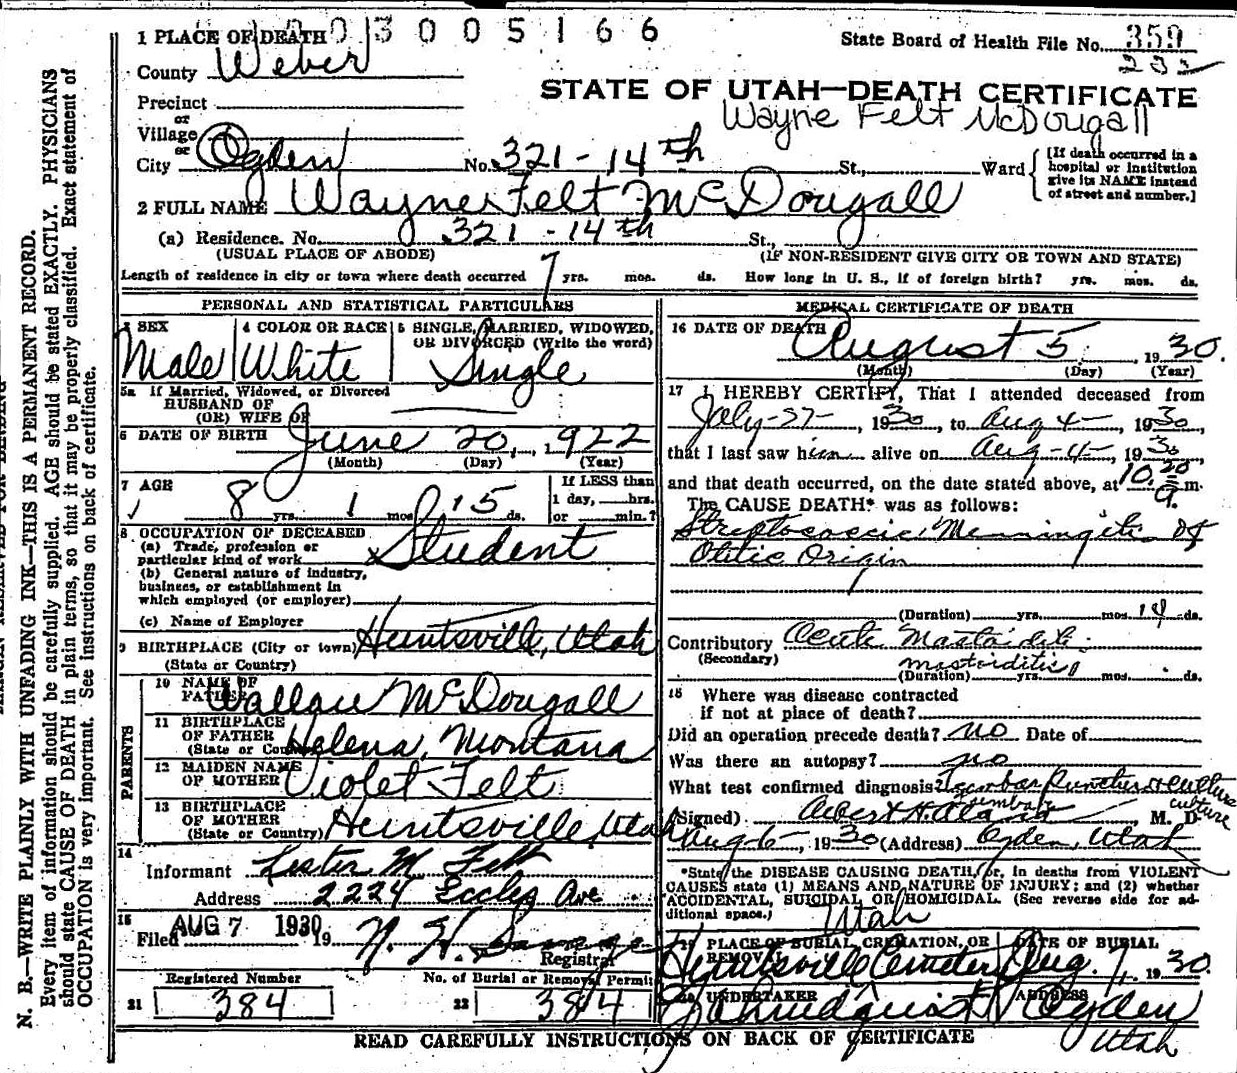 003005166
1 PLACE OF DEATH
State Board of Health File No. 359
232
County Weber
STATE OF UTAH—DEATH CERTIFICATE
Precinct
Wayne Felt McDougall
or
Village
or
City Ogden No. 321-14th St., Ward [If death occurred in a hospital or institution give its NAME instead of street and number.]
2 FULL NAME Wayne Felt McDougall
(a) Residence. No. 321-14th St.,
(USUAL PLACE OF ABODE) (IF NON-RESIDENT GIVE CITY OR TOWN AND STATE)
Length of residence in city or town where death occurred 7 yrs. mos. ds. How long in U. S., if of foreign birth? yrs. mos. ds.
PERSONAL AND STATISTICAL PARTICULARS
3 SEX 4 COLOR OR RACE 5 SINGLE, MARRIED, WIDOWED, OR DIVORCED (Write the word)
Male White Single
5a If Married, Widowed, or Divorced
HUSBAND OF
(OR) WIFE OF
6 DATE OF BIRTH June 20, 1922
(Month) (Day) (Year)
7 AGE 8 yrs. 1 mos. 15 ds. If LESS than 1 day, hrs. or min.?
8 OCCUPATION OF DECEASED
(a) Trade, profession or
particular kind of work Student
(b) General nature of industry,
business, or establishment in
which employed (or employer)
(c) Name of Employer
9 BIRTHPLACE (City or town) Huntsville, Utah
(State or Country)
PARENTS
10 NAME OF FATHER Wallace McDougall
11 BIRTHPLACE OF FATHER (State or Country) Helena, Montana
12 MAIDEN NAME OF MOTHER Violet Felt
13 BIRTHPLACE OF MOTHER (State or Country) Huntsville, Utah
14
Informant Lester M. Felt
Address 2224 Eccles Ave
15
Filed AUG 7 1930 19 N. H. Savage
Registrar
Registered Number No. of Burial or Removal Permit
21 384 22 384
MEDICAL CERTIFICATE OF DEATH
16 DATE OF DEATH August 5, 1930.
(Month) (Day) (Year)
17 I HEREBY CERTIFY, That I attended deceased from
July-27-, 1930, to Aug 4-, 1930,
that I last saw him alive on Aug-4-, 1930,
and that death occurred, on the date stated above, at 10.20 a. m.
The CAUSE DEATH* was as follows:
Streptococcic Meningitis of
Otitic Origin
(Duration) yrs. mos. 14 ds.
Contributory Acute Mastoiditis
(Secondary) mastoiditis
(Duration) yrs. mos. ds.
18 Where was disease contracted
if not at place of death?
Did an operation precede death? no Date of
Was there an autopsy? no
What test confirmed diagnosis? Lumbar Puncture & Culture
lumbar culture
(Signed) Albert H. M. D.
Aug 6, 1930 (Address) Ogden, Utah
*State the DISEASE CAUSING DEATH, or, in deaths from VIOLENT
CAUSES state (1) MEANS AND NATURE OF INJURY; and (2) whether
ACCIDENTAL, SUICIDAL OR HOMICIDAL. (See reverse side for ad-
ditional space.)
Utah
19 PLACE OF BURIAL, CREMATION, OR REMOVAL DATE OF BURIAL
Huntsville Cemetery Aug. 7, 1930.
20 UNDERTAKER ADDRESS
Ogden
Utah
READ CAREFULLY INSTRUCTIONS ON BACK OF CERTIFICATE
N. B.—WRITE PLAINLY WITH UNFADING INK—THIS IS A PERMANENT RECORD.
Every item of information should be carefully supplied. AGE should be stated EXACTLY. PHYSICIANS
should state CAUSE OF DEATH in plain terms, so that it may be properly classified. Exact statement of
OCCUPATION is very important. See instructions on back of certificate.